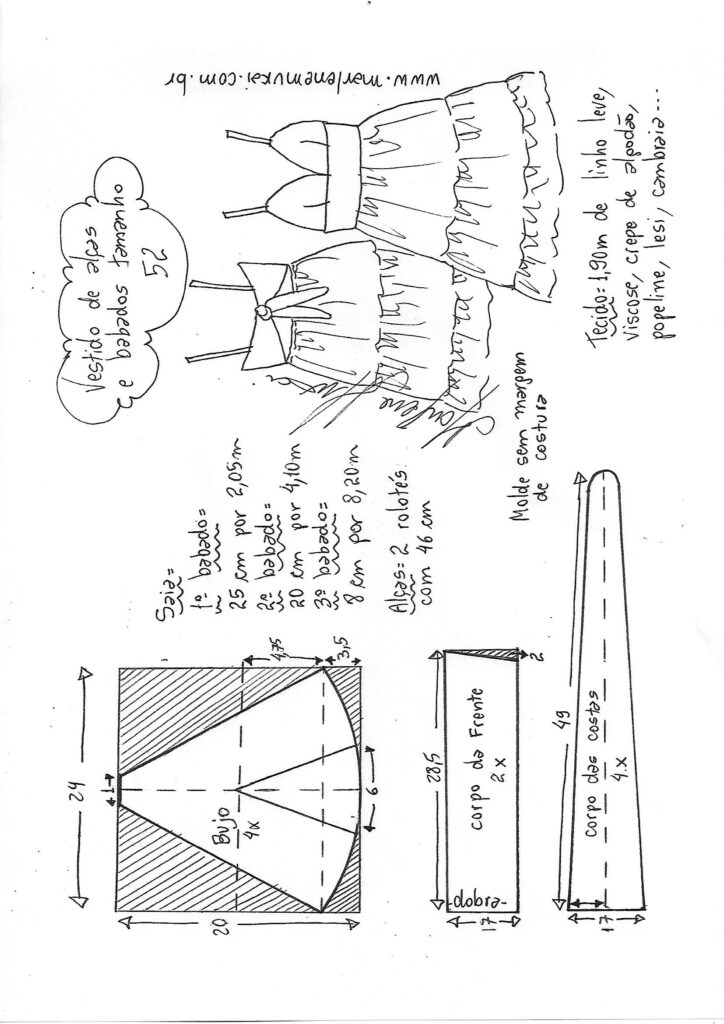 Vestido de alças
e babados tamanho
52
www.marlenemukai.com.br
Marlene Mukai
Tecido= 1,90m de linho leve,
viscose, crepe de algodão,
popeline, lesi, cambraia...
Saia=
1º babado=
25 cm por 2,05m
2º babado=
20 cm por 4,10m
3º babado=
8 cm por 8,20m
Alças= 2 rolotés
com 46 cm
Molde sem margem
de costura
24
1
20
Bujo
4x
4,75
3,5
6
28,5
corpo da Frente
2x
-dobra-
17
2
49
corpo das costas
4x
17